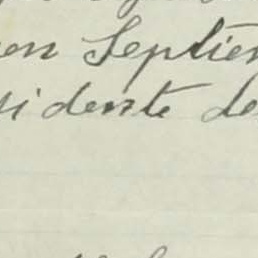 en Septie
sidente de